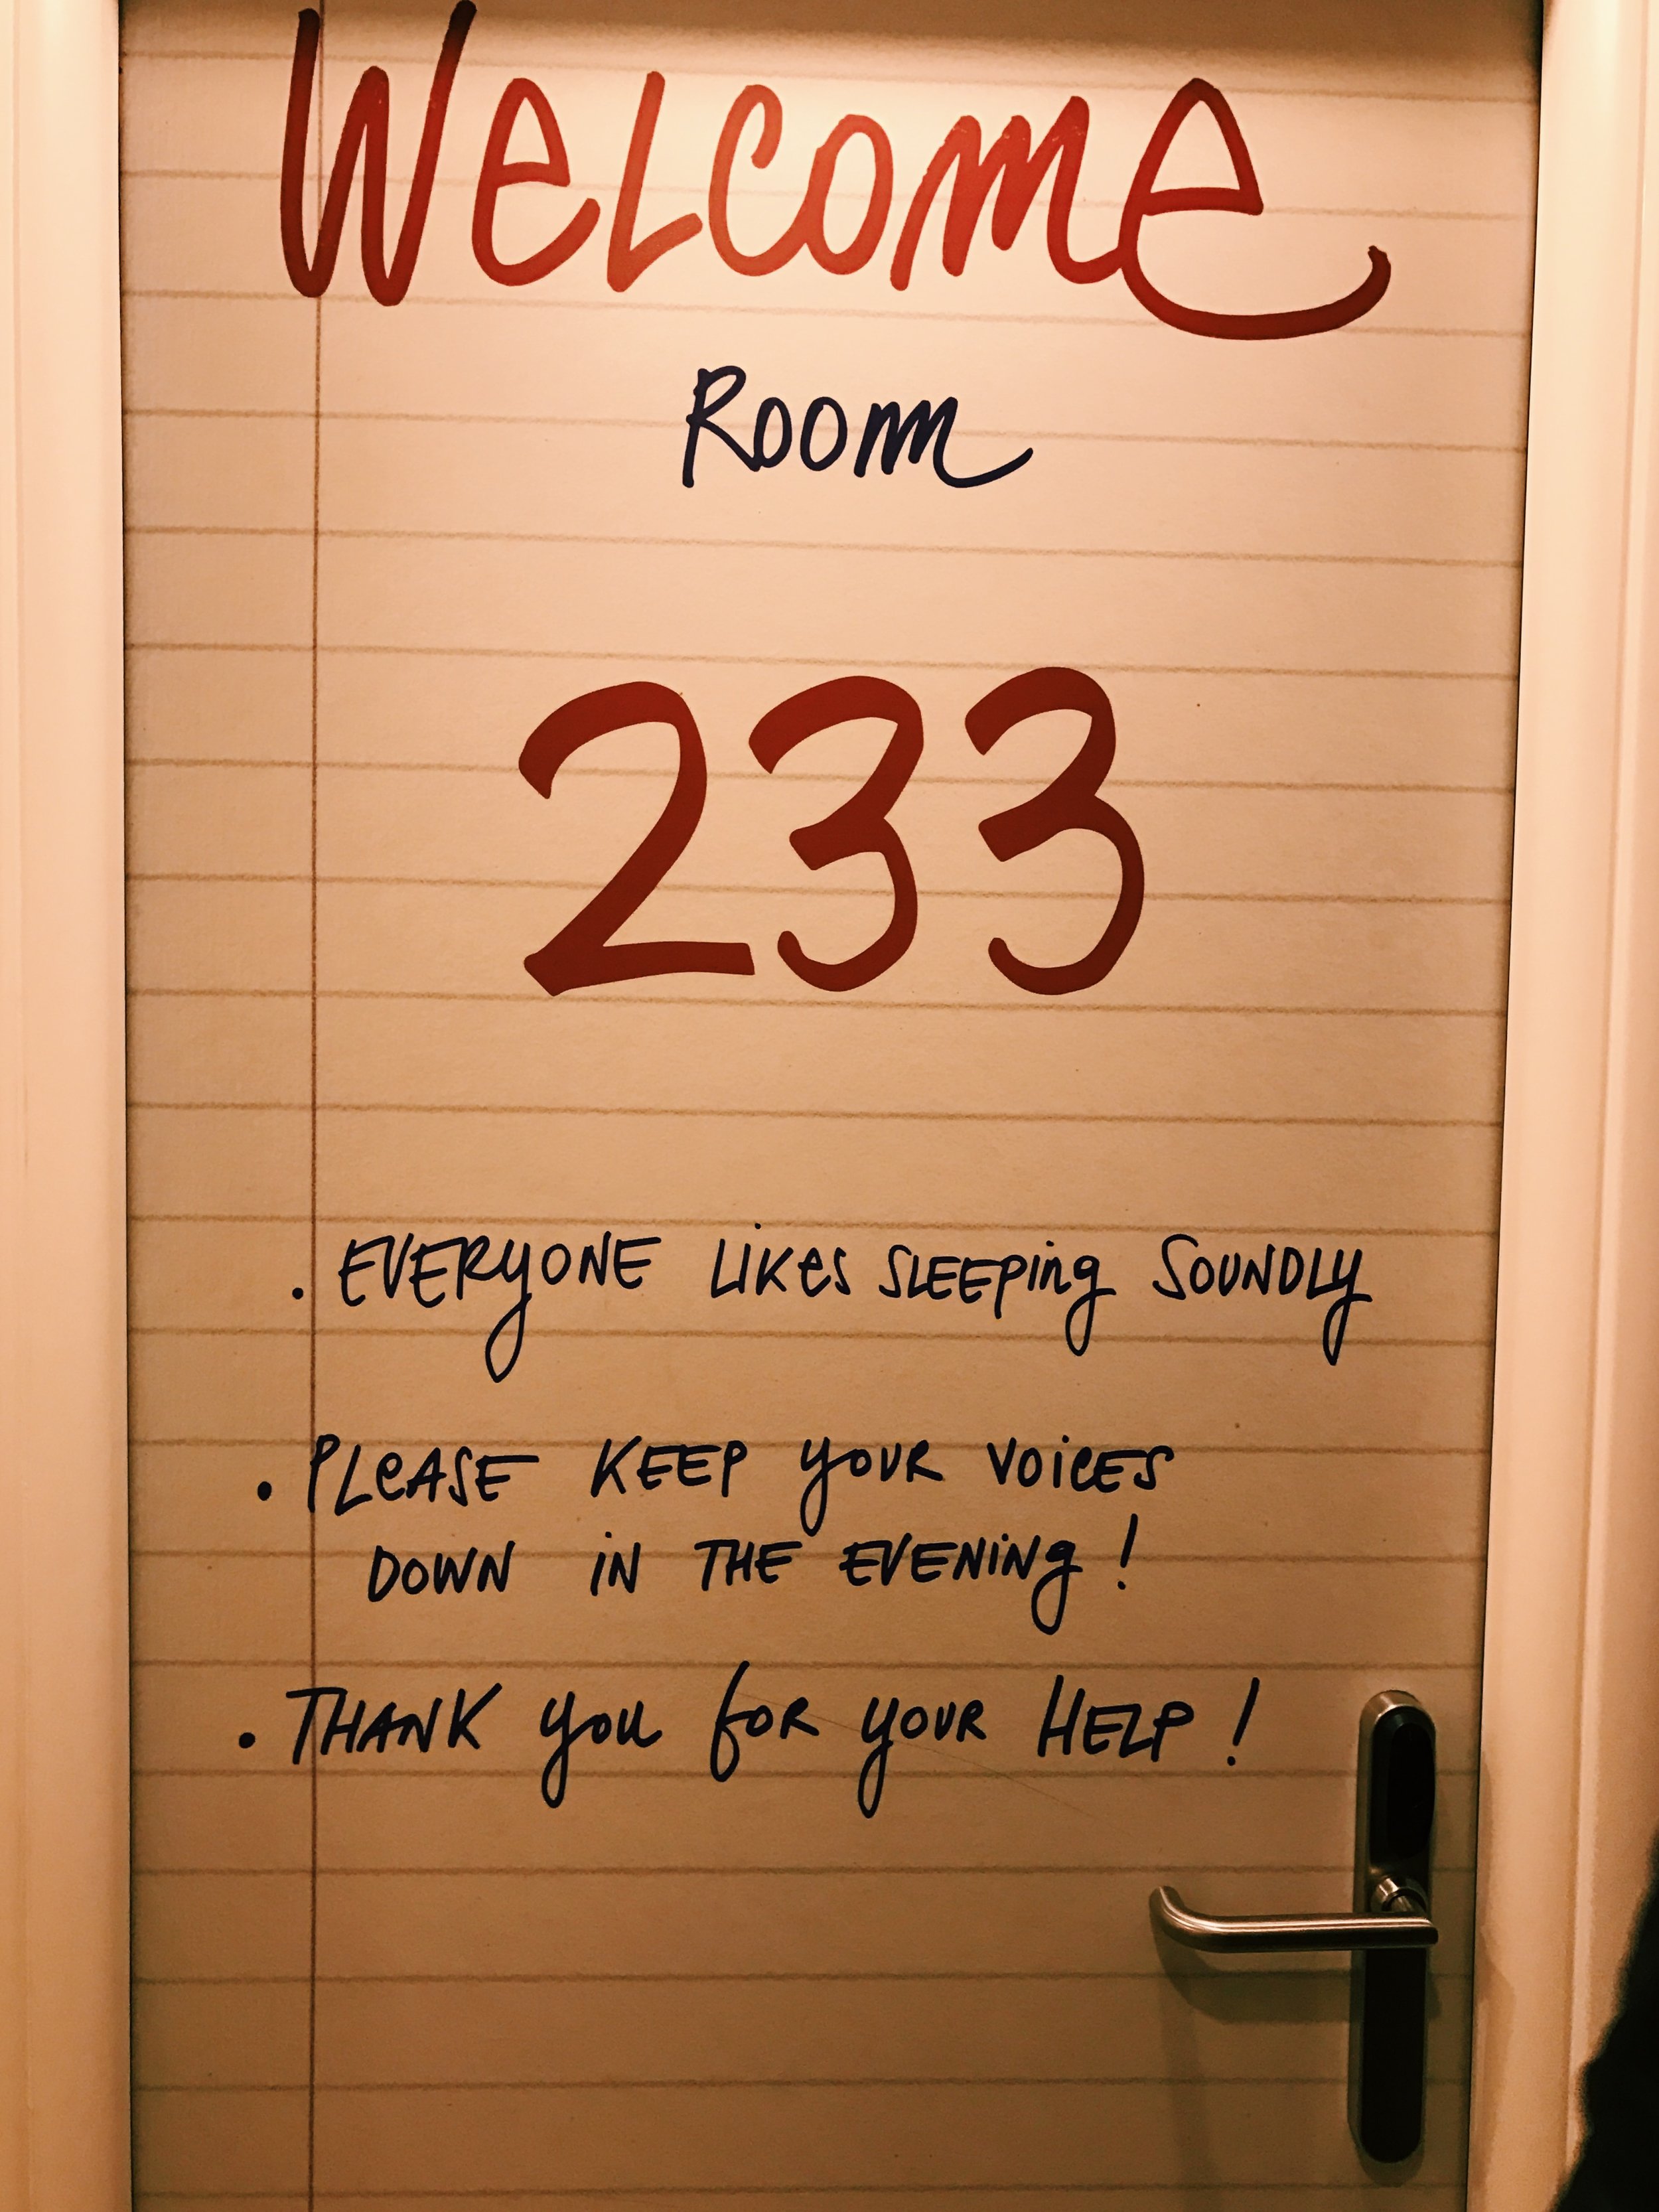 Welcome
Room
233
. EVERYONE LIKES SLEEPING SOUNDLY
. PLEASE KEEP YOUR VOICES
DOWN IN THE EVENING !
. THANK YOU FOR YOUR HELP !